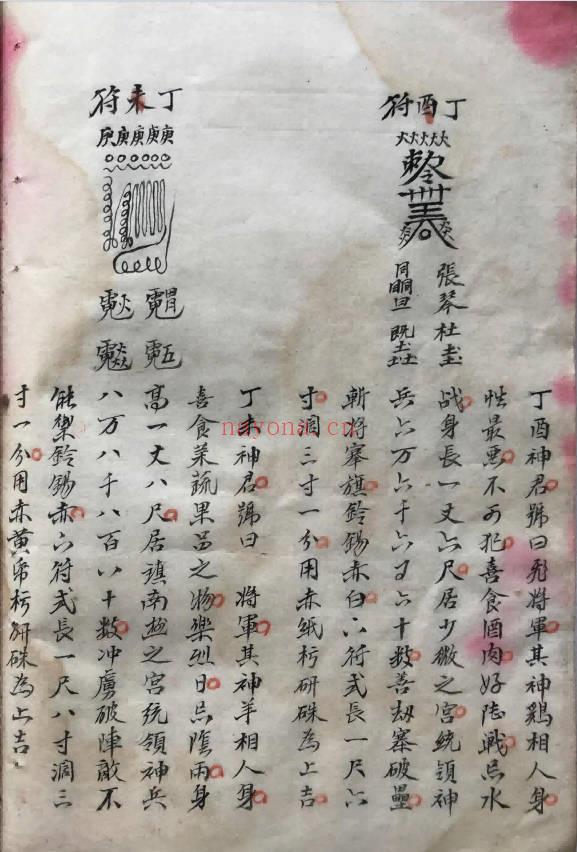 丁酉符
張琴杜
丁酉神君號曰飛將軍其神鷄相人身
性最惡不可犯喜食酒肉好陸戰忌水
战身長一丈六尺居少微之宫統領神
兵六万六千六百六十數善劫寨破壘
斬將搴旗鈴錫赤白六符式長一尺六
寸濶三寸一分用赤纸朽研硃為上吉
丁未符
庚庚庚庚庚
丁未神君號曰 將軍其神羊相人身
喜食菜蔬果品之物樂烈日忌陰雨身
高一丈八尺居鎮南極之宫統領神兵
八万八千八百八十數冲虜破陣敵不
能禦鈴錫赤六符式長一尺八寸濶三
寸一分用赤黄帋朽研硃為上吉
nayona.cn